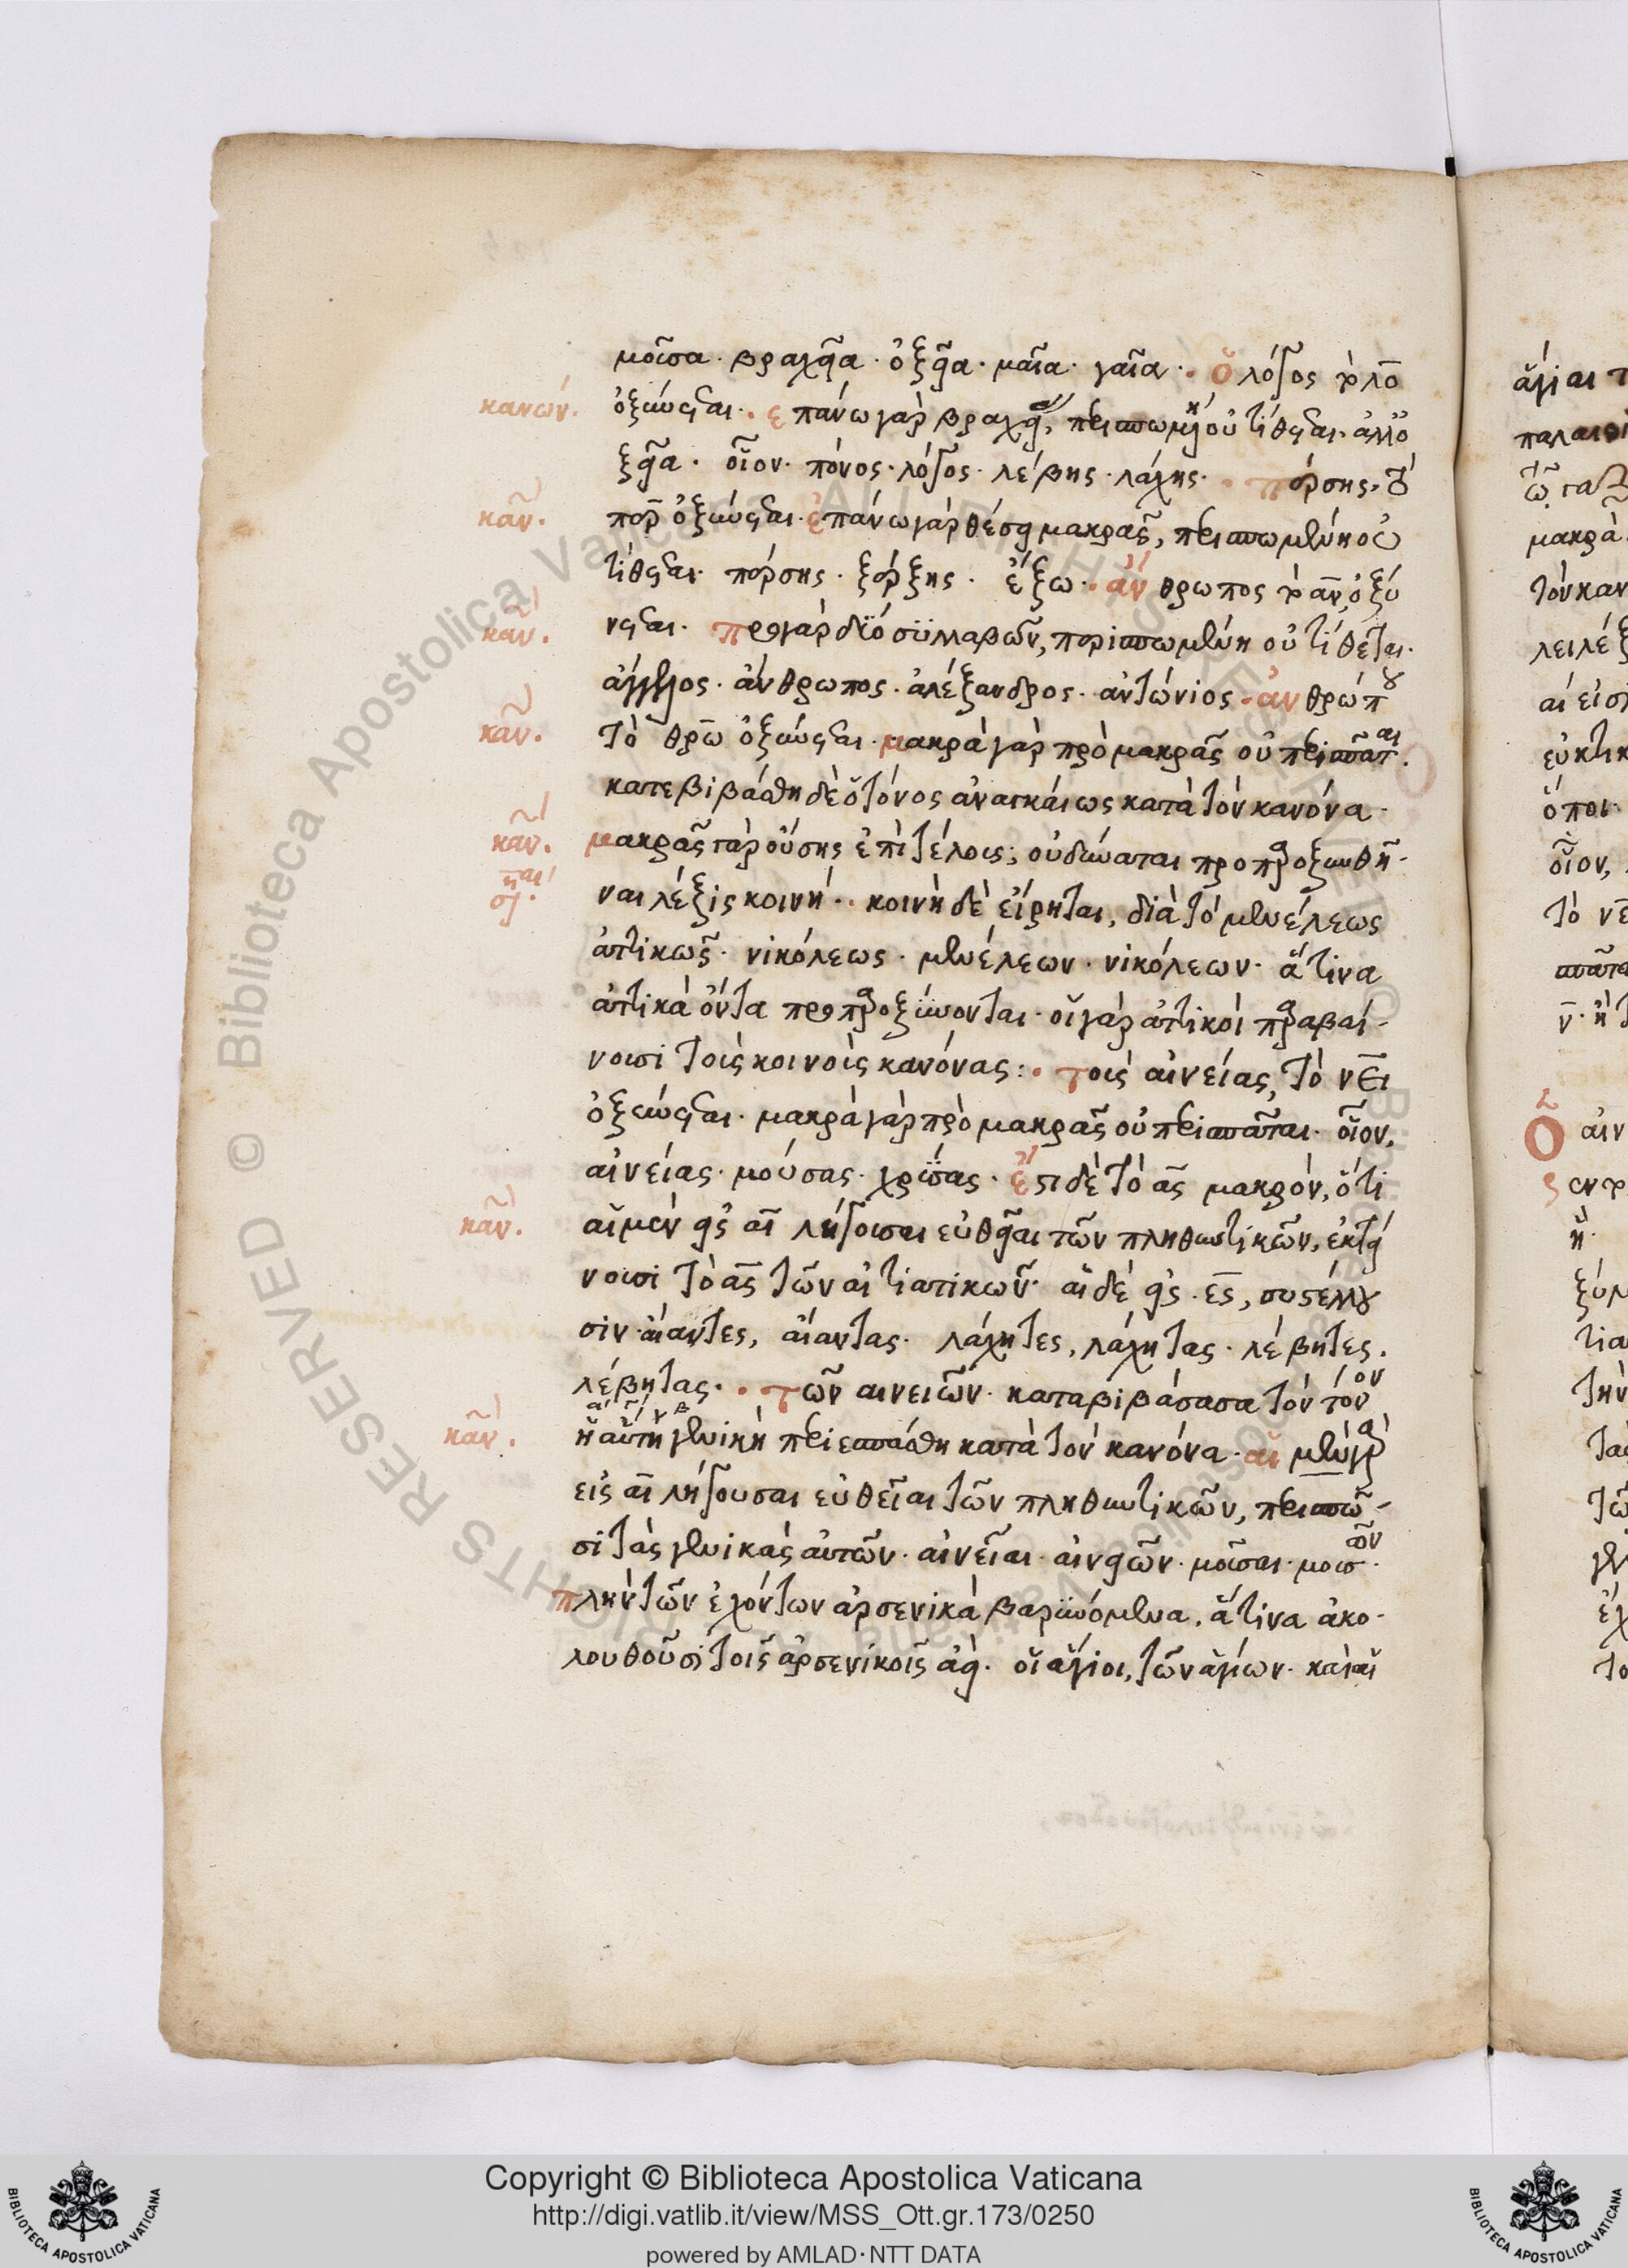 μοῦσα· βραχεῖα· ὀξεῖα· μαῖα· γαῖα· ὁ λόγος τὸ λο
κανών. ὀξύνεται· ἐπάνω γὰρ βραχείας, περισπωμένη οὐ τίθεται· ἀλλ' ὀ
ξεῖα· οἷον· πόνος· λόγος· λέβης· λάχης· πέρσης, τὸ
καν. περ ὀξύνεται· ἐπάνω γὰρ θέσει μακρᾶς, περισπωμένη οὐ
τίθεται· πέρσης· ξέρξης· ἕξω· ἄνθρωπος τὸ αν, ὀξύ
καν. νεται· πρὸ γὰρ δύο συλλαβῶν, περισπωμένη οὐ τίθεται·
ἄγγελος· ἄνθρωπος· ἀλέξανδρος· ἀντώνιος· ἀνθρώπου
καν. τὸ θρω ὀξύνεται· μακρὰ γὰρ πρὸ μακρᾶς οὐ περισπᾶται.
κατεβιβάσθη δὲ ὁ τόνος ἀναγκαίως κατὰ τὸν κανόνα·
καν. μακρᾶς γὰρ οὔσης ἐπὶ τέλους, οὐ δύναται προπαροξυνθῆ-
ναι λέξις κοινή· κοινὴ δὲ εἴρηται, διὰ τὸ μενέλεως
ἀττικῶς· νικόλεως· μενέλεων· νικόλεων· ἅτινα
ἀττικὰ ὄντα προπαροξύνονται· οἱ γὰρ ἀττικοὶ παραβαί-
νουσι τοὺς κοινοὺς κανόνας: τοὺς αἰνείας, τὸ νει
ὀξύνεται· μακρὰ γὰρ πρὸ μακρᾶς οὐ περισπᾶται· οἷον,
αἰνείας· μούσας· χρύσας· ἔστι δὲ τὸ ας μακρὸν, ὅτι
καν. αἱ μὲν εἰς αι λήγουσαι εὐθεῖαι τῶν πληθυντικῶν, ἐκτεί
νουσι τὸ ας τῶν αἰτιατικῶν· αἱ δὲ εἰς ες, συστέλλου
σιν· αἴαντες, αἴαντας· λάχητες, λάχητας· λέβητες.
λέβητας· τῶν αινειῶν· καταβιβάσασα τὸν τόνον
καν. ἡ αὐτὴ γενικὴ περιεσπάσθη κατὰ τὸν κανόνα· αἱ μὲν γὰρ
εἰς αι λήγουσαι εὐθεῖαι τῶν πληθυντικῶν, περισπῶ-
σι τὰς γενικὰς αὐτῶν· αἰνεῖαι· αἰνειῶν· μοῦσαι· μουσῶν·
πλὴν τῶν ἐχόντων ἀρσενικὰ βαρυνόμενα, ἅτινα ἀκο-
λουθοῦσι τοῖς ἀρσενικοῖς ἀεί· οἱ ἅγιοι, τῶν ἁγίων· καὶ αἱ
Copyright © Biblioteca Apostolica Vaticana
http://digi.vatlib.it/view/MSS_Ott.gr.173/0250
powered by AMLAD·NTT DATA